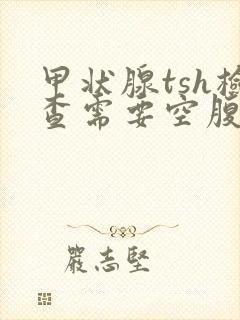 甲状腺tsh檢
查需要空腹
嚴志堅